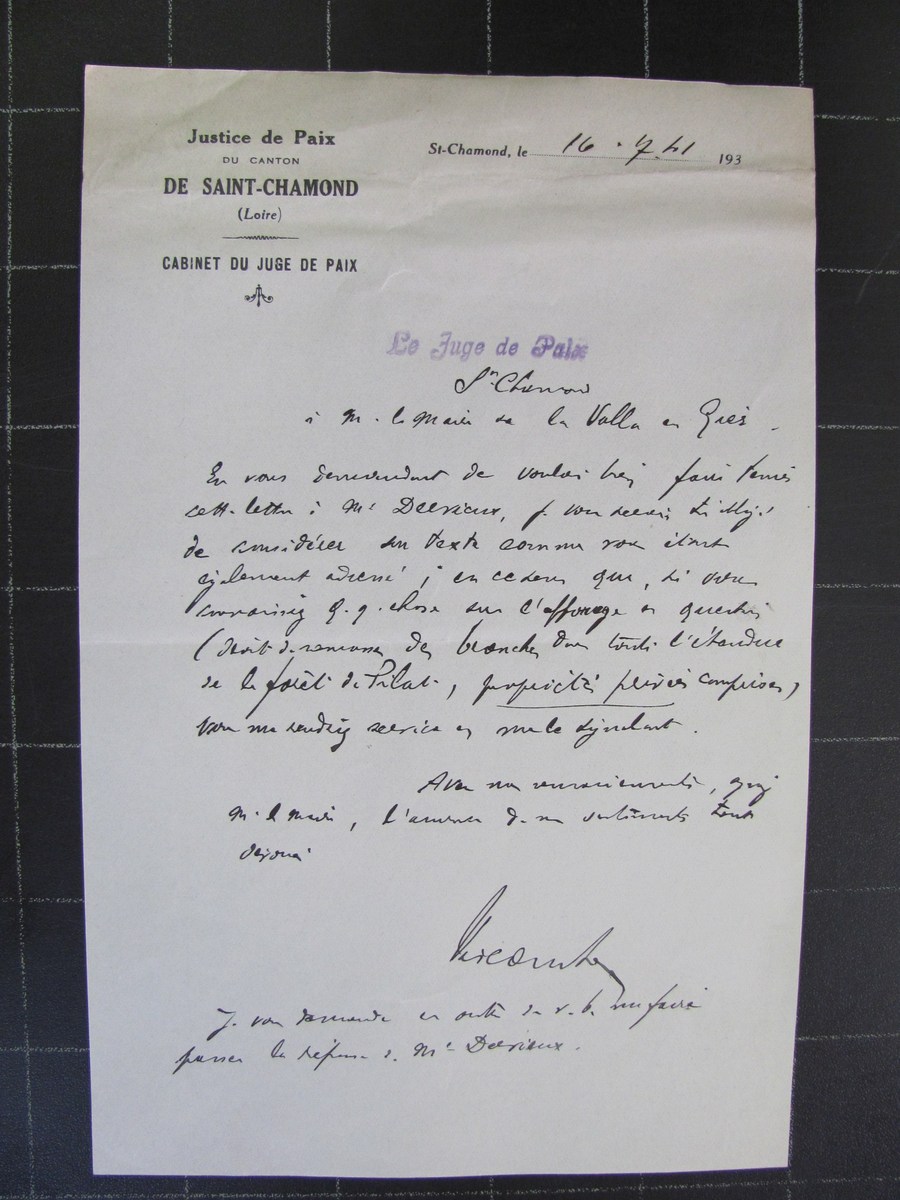 Justice de Paix
DU CANTON
DE SAINT-CHAMOND
(Loire)
CABINET DU JUGE DE PAIX
St-Chamond, le 16.7.41 193
Le Juge de Paix
St Chamond
à M. le Maire de la Valla en Gier.
En vous demandant de vouloir bien faire tenir
cette lettre à Mr Devrieux, je vous serais obligé
de considérer son texte comme vous étant
également adressé ; en ce sens que, si vous
connaissiez q.q. chose sur l'affouage en question
(droit de ramasser des branches dans toute l'étendue
de la forêt de Pilat, propriétés privées comprises)
vous me rendriez service en me le signalant.
Avec mes remerciements, agréez
M. le Maire, l'assurance de mes sentiments tout
dévoués
Je vous demande en outre de v. b. me faire
passer la réponse de Mr Devrieux.